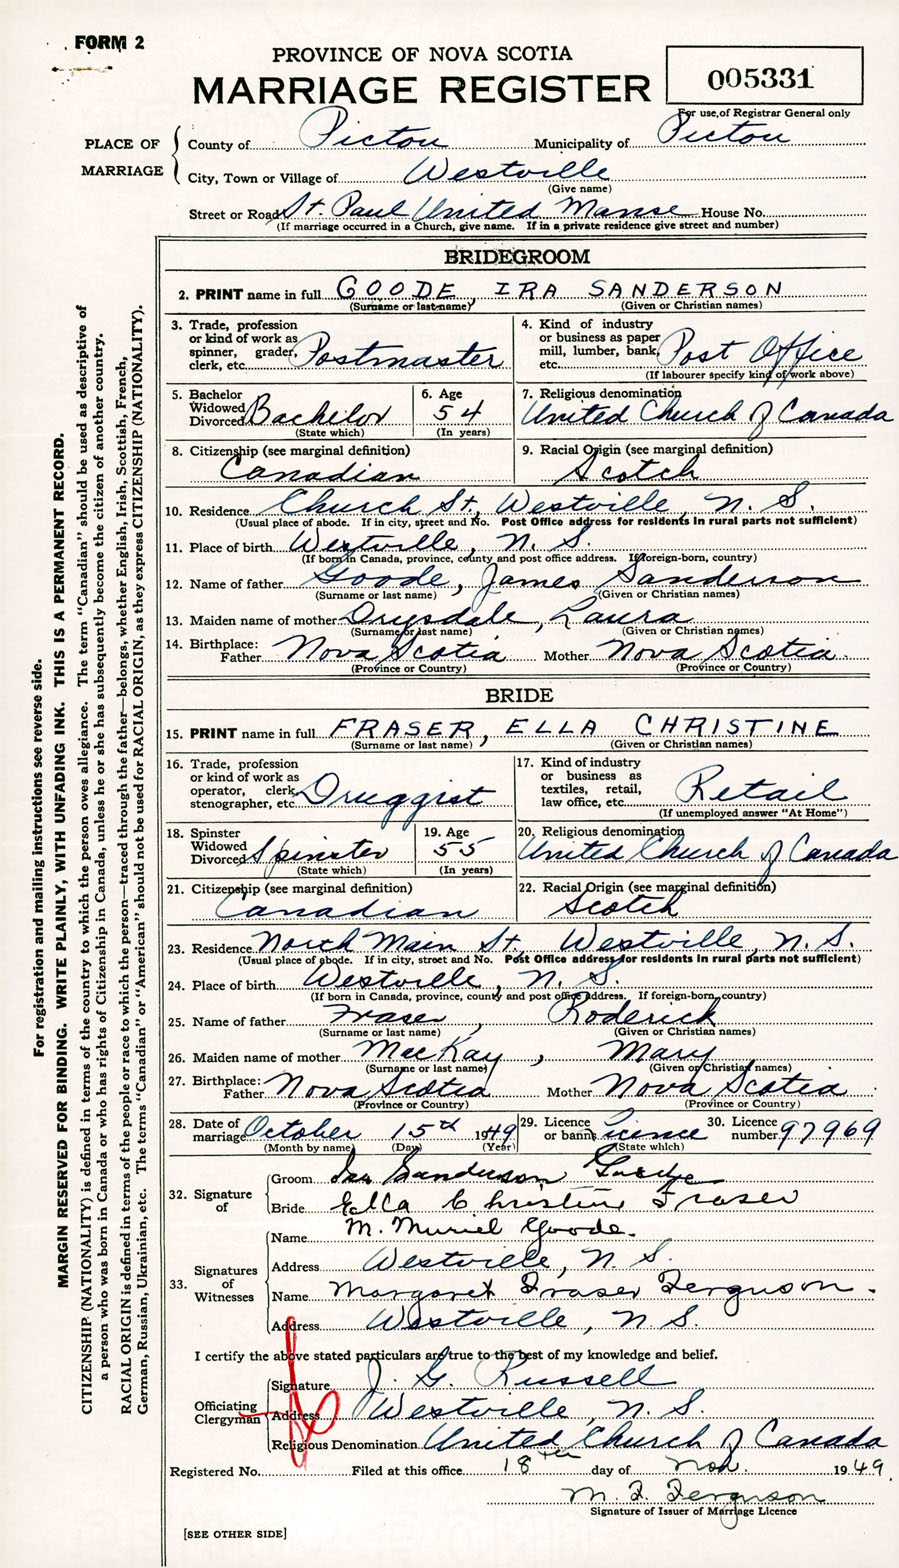 FORM 2
PROVINCE OF NOVA SCOTIA
MARRIAGE REGISTER
005331
For use of Registrar General only
PLACE OF MARRIAGE
County of Pictou Municipality of Pictou
City, Town or Village of Westville
(Give name)
Street or Road St. Paul United Manse House No.
(If marriage occurred in a Church, give name. If in a private residence give street and number)
BRIDEGROOM
2. PRINT name in full GOODE, IRA SANDERSON
(Surname or last name) (Given or Christian names)
3. Trade, profession or kind of work as spinner, grader, clerk, etc. Postmaster
4. Kind of industry or business as paper mill, lumber, bank, etc. Post Office
(If labourer specify kind of work above)
5. Bachelor Widowed Divorced Bachelor
(State which)
6. Age 54
(In years)
7. Religious denomination
United Church of Canada
8. Citizenship (see marginal definition)
Canadian
9. Racial Origin (see marginal definition)
Scotch
10. Residence Church St, Westville, N. S.
(Usual place of abode. If in city, street and No. Post Office address for residents in rural parts not sufficient)
11. Place of birth Westville, N. S.
(If born in Canada, province, county and post office address. If foreign-born, country)
12. Name of father Goode, James Sanderson
(Surname or last name) (Given or Christian names)
13. Maiden name of mother Drysdale, Laura
(Surname or last name) (Given or Christian names)
14. Birthplace:
Father Nova Scotia Mother Nova Scotia
(Province or Country) (Province or Country)
BRIDE
15. PRINT name in full FRASER, ELLA CHRISTINE
(Surname or last name) (Given or Christian names)
16. Trade, profession or kind of work as operator, clerk, stenographer, etc. Druggist
17. Kind of industry or business as textiles, retail, law office, etc. Retail
(If unemployed answer "At Home")
18. Spinster Widowed Divorced Spinster
(State which)
19. Age 55
(In years)
20. Religious denomination
United Church of Canada
21. Citizenship (see marginal definition)
Canadian
22. Racial Origin (see marginal definition)
Scotch
23. Residence North Main St. Westville, N. S.
(Usual place of abode. If in city, street and No. Post Office address for residents in rural parts not sufficient)
24. Place of birth Westville, N. S.
(If born in Canada, province, county and post office address. If foreign-born, country)
25. Name of father Fraser, Roderick
(Surname or last name) (Given or Christian names)
26. Maiden name of mother MacKay, Mary
(Surname or last name) (Given or Christian names)
27. Birthplace:
Father Nova Scotia Mother Nova Scotia
(Province or Country) (Province or Country)
28. Date of marriage October 15th 1949
(Month by name) (Day) (Year)
29. Licence or banns Licence
(State which)
30. Licence number 97969
32. Signature of
Groom Ira Sanderson Goode
Bride Ella Christine Fraser
33. Signatures of Witnesses
Name M. Muriel Goode.
Address Westville, N. S.
Name Margaret Fraser Ferguson.
Address Westville, N. S.
I certify the above stated particulars are true to the best of my knowledge and belief.
Officiating Clergyman
Signature J. G. Russell
Address Westville, N. S.
Religious Denomination United Church of Canada
Registered No. Filed at this office 18th day of Nov. 1949.
M. F. Ferguson
Signature of Issuer of Marriage Licence
[SEE OTHER SIDE]
For registration and mailing instructions see reverse side.
MARGIN RESERVED FOR BINDING. WRITE PLAINLY, WITH UNFADING INK. THIS IS A PERMANENT RECORD.
CITIZENSHIP (NATIONALITY) is defined in terms of the country to which the person owes allegiance. The term "Canadian" should be used as descriptive of
a person who was born in Canada or who has rights of Citizenship in Canada, unless he or she has subsequently become the citizen of another country.
RACIAL ORIGIN is defined in terms of the people or race to which the person—traced through the father—belongs, whether English, Irish, Scottish, French,
German, Russian, Ukrainian, etc. The terms "Canadian" or "American" should not be used for RACIAL ORIGIN, as they express CITIZENSHIP (NATIONALITY).